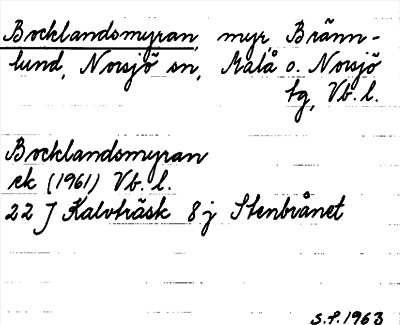 Bocklandsmyran, myr Bränn-
lund, Norsjö sn, Malå o. Norsjö
tg, Vb. l.
Bocklandsmyran
ek (1961) Vb. l.
22 J Kalvträsk 8 j Stenbrånet
S.P. 1963